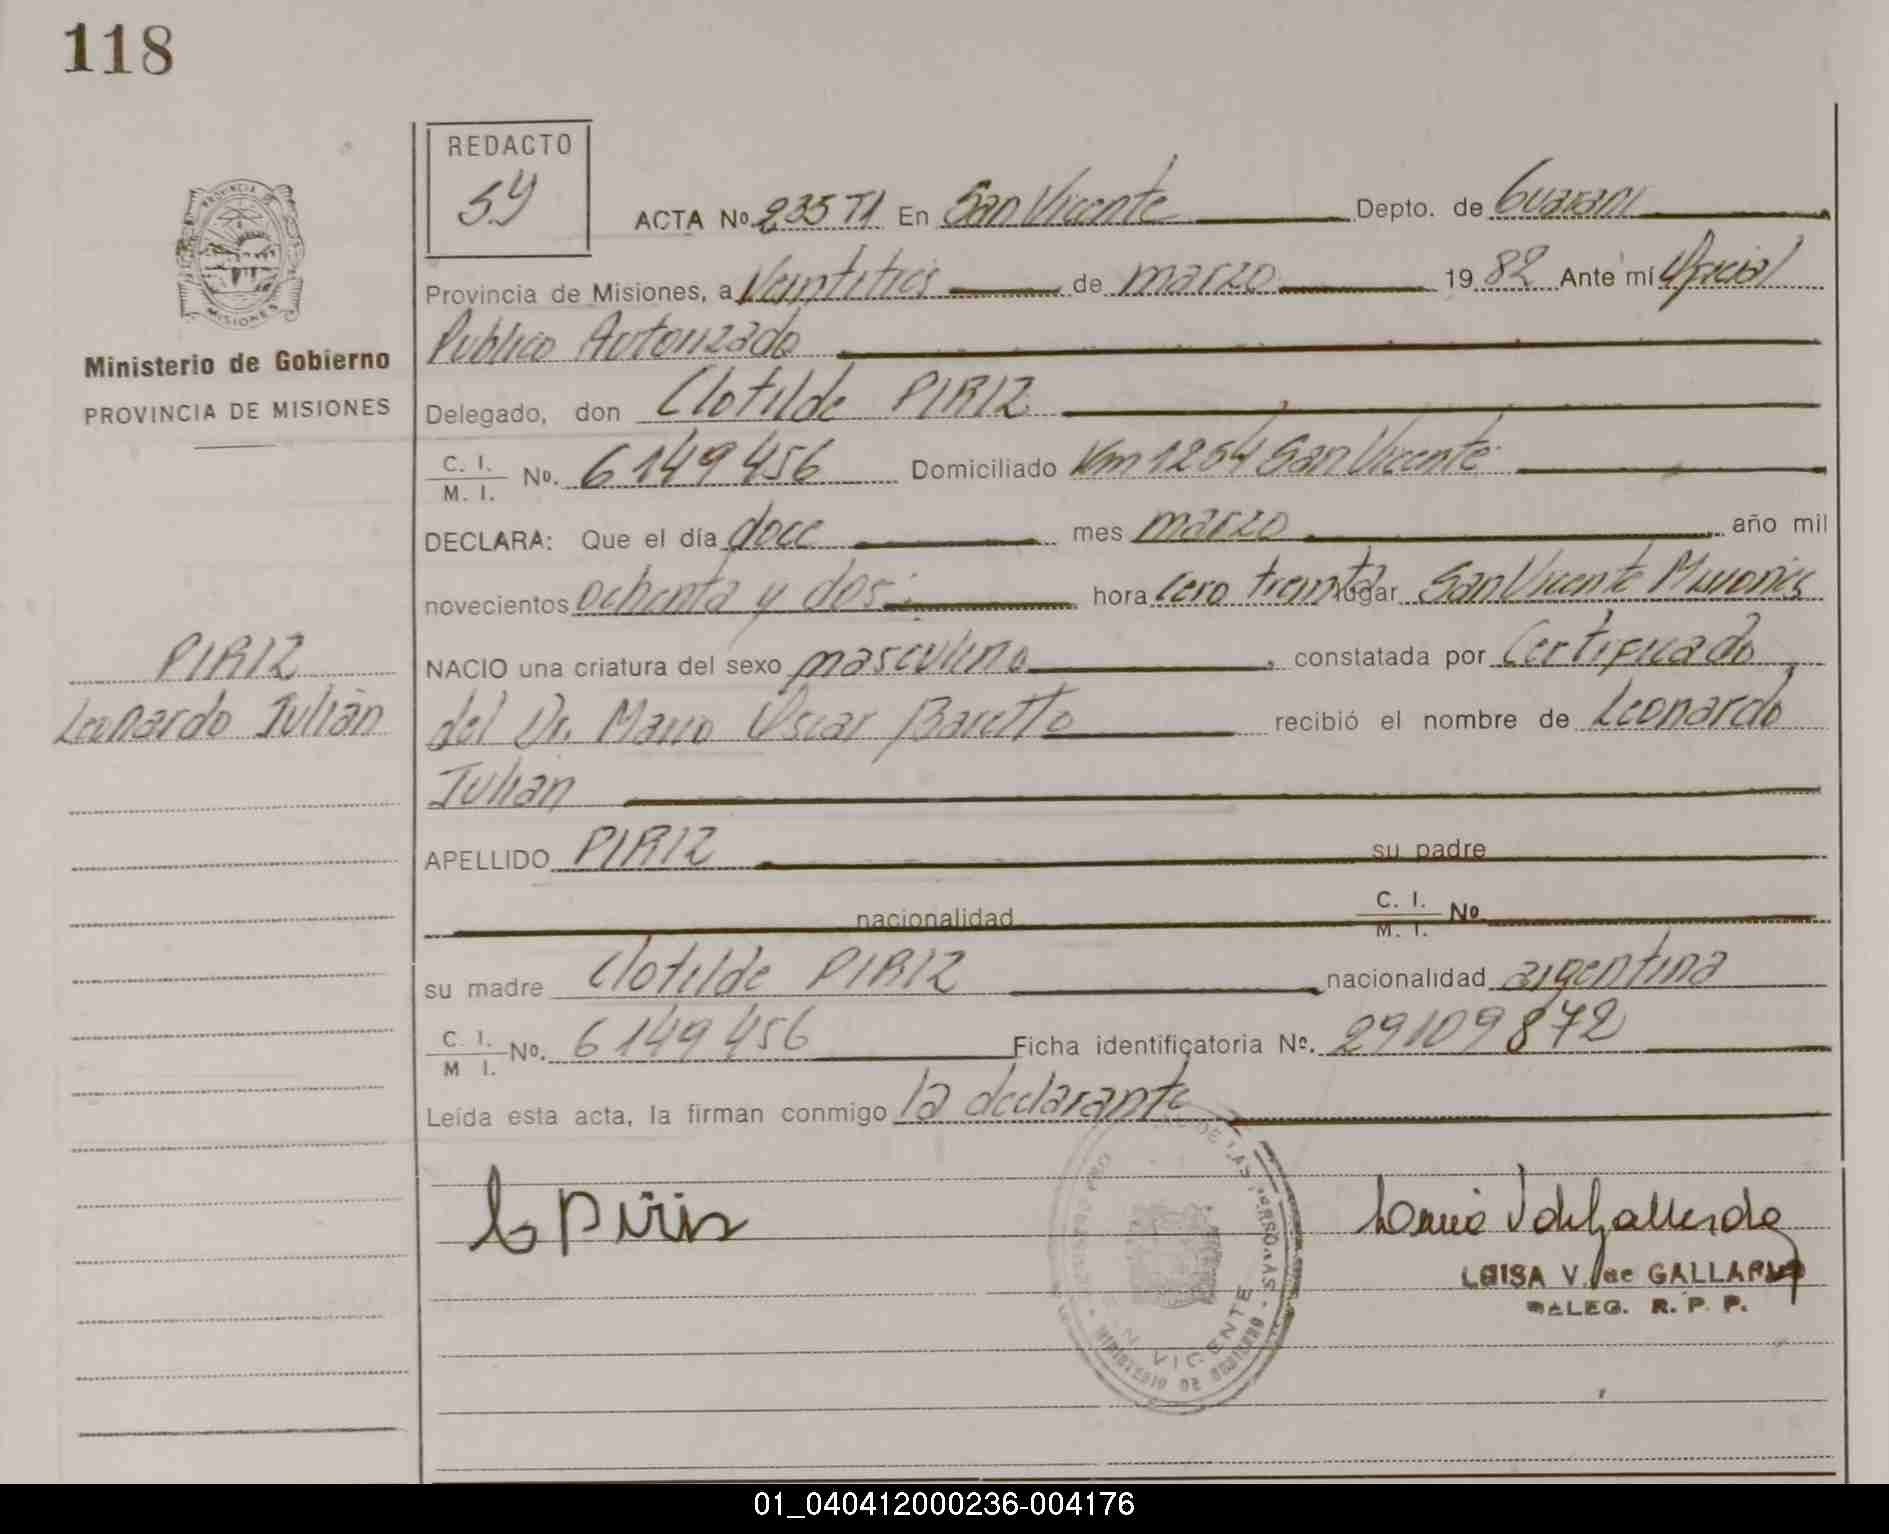 118
REDACTO
59
ACTA Nº 235 T1 En San Vicente Depto. de Guarani
Provincia de Misiones, a Veintitres de marzo 1982 Ante mí Oficial
Publico Autorizado
Ministerio de Gobierno
PROVINCIA DE MISIONES
Delegado, don Clotilde PIRIZ
C. I. / M. I. Nº. 6149456 Domiciliado Km 1254 San Vicente
DECLARA: Que el día doce mes marzo año mil
novecientos ochenta y dos hora cero treinta lugar San Vicente Misiones
NACIO una criatura del sexo masculino, constatada por Certificado
PIRIZ
Leonardo Julián
del Dr. Mario Oscar Baretto recibió el nombre de Leonardo
Julián
APELLIDO PIRIZ su padre
nacionalidad C. I. / M. I. Nº
su madre Clotilde PIRIZ nacionalidad argentina
C. I. / M I. Nº. 6149456 Ficha identificatoria Nº. 29109872
Leída esta acta, la firman conmigo la declarante
C Piris
LUISA V. de GALLARDO
DELEG. R. P. P.
DE LAS PERSONAS
VICENTE
MINISTERIO DE GOBIERNO
01_040412000236-004176